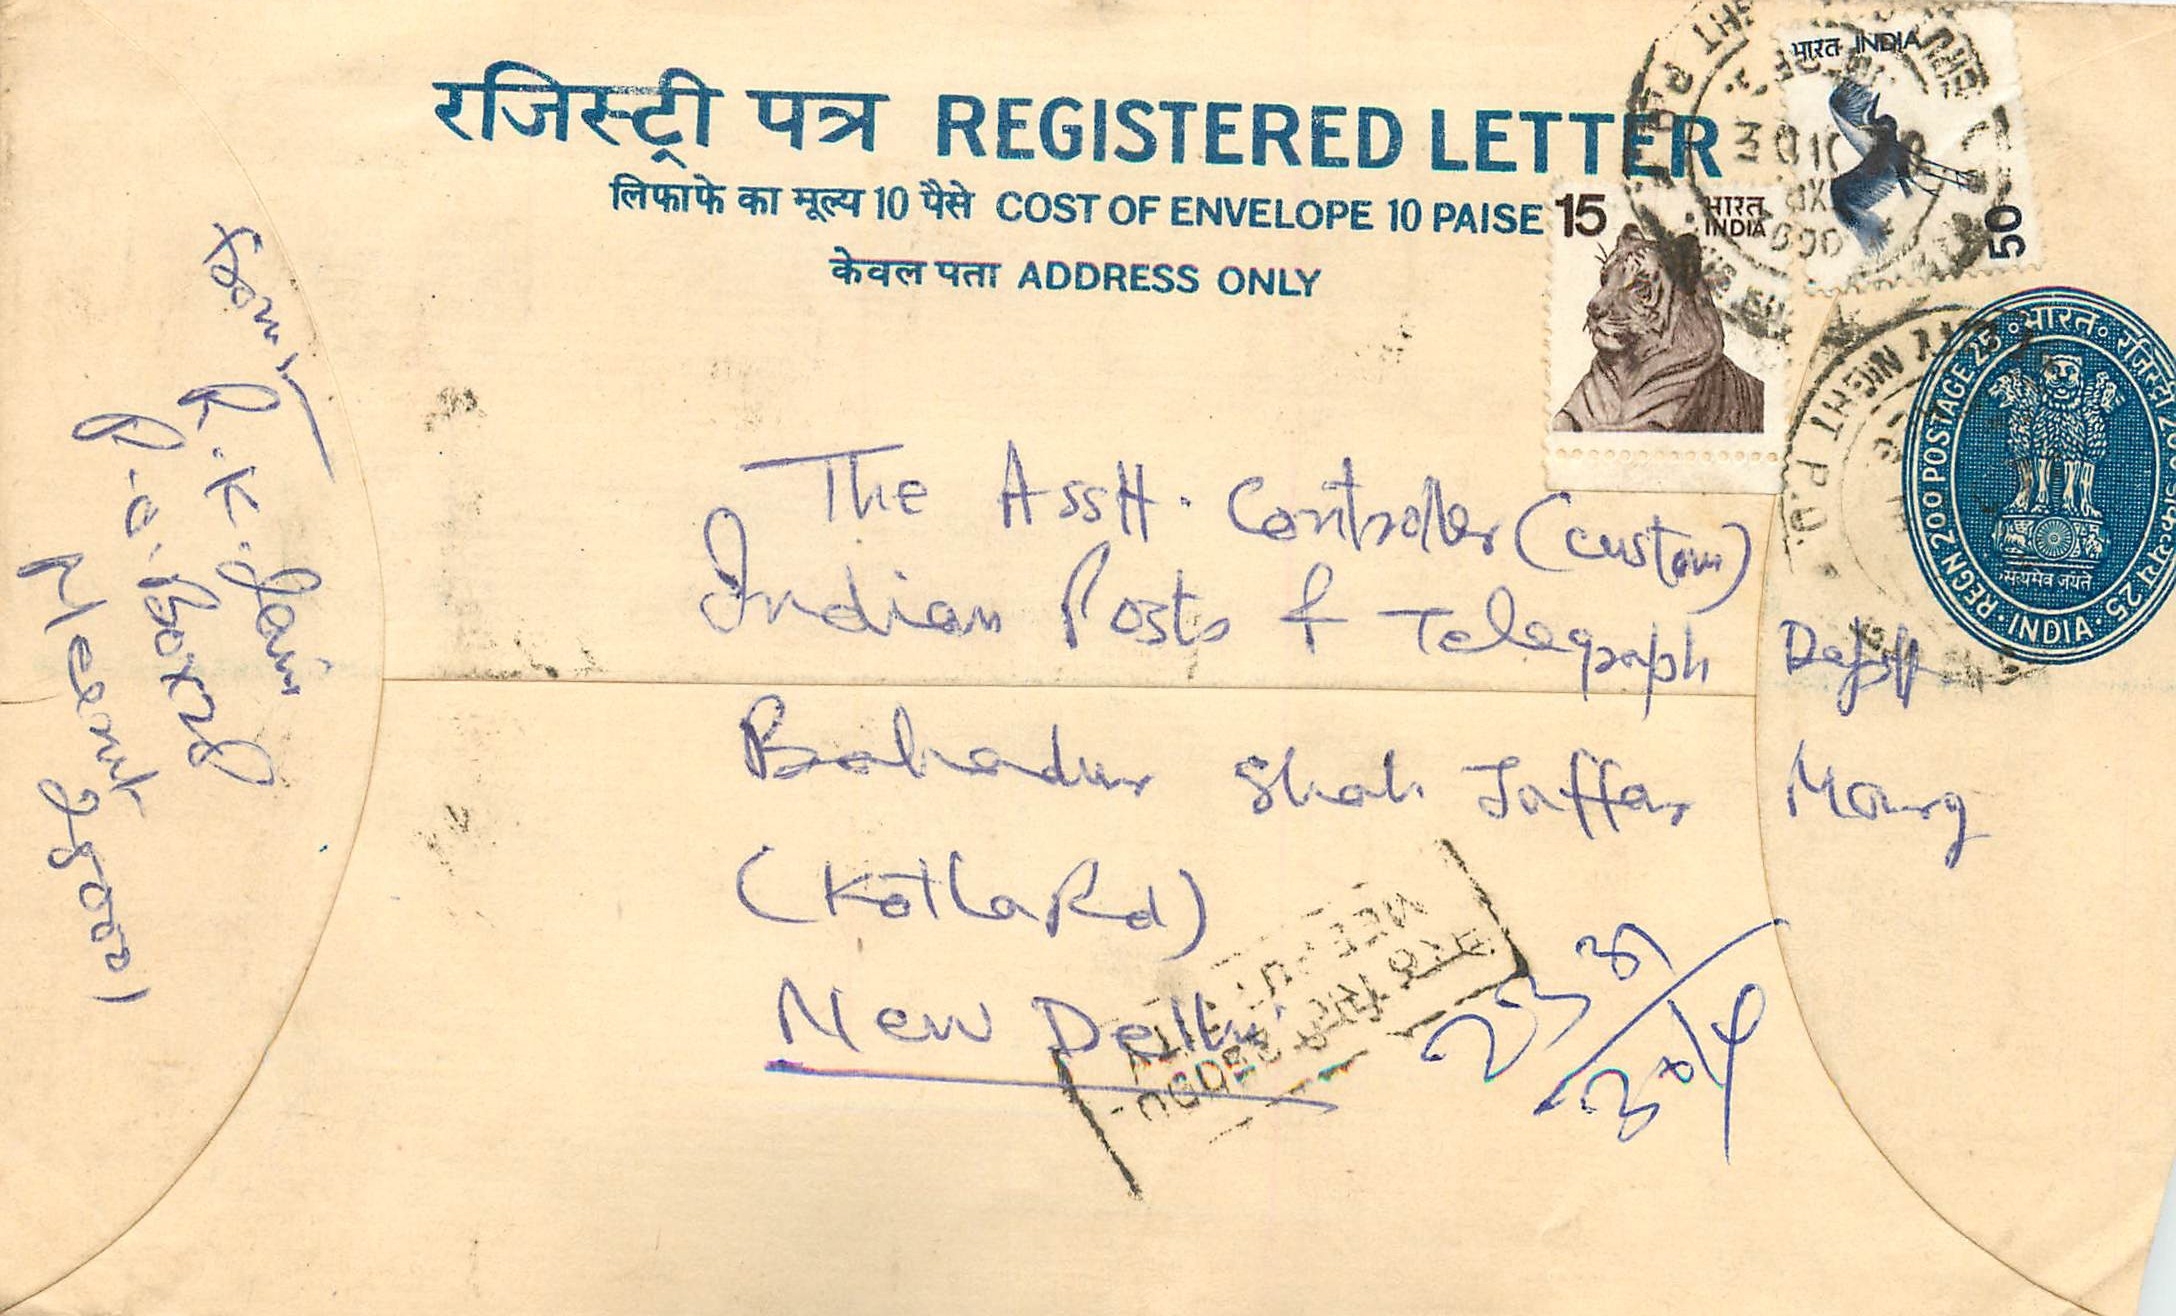 रजिस्ट्री पत्र REGISTERED LETTER
लिफाफे का मूल्य 10 पैसे COST OF ENVELOPE 10 PAISE
केवल पता ADDRESS ONLY
भारत INDIA
50
15 भारत INDIA
भारत रजिस्ट्री
REGN 200 POSTAGE 25
सत्यमेव जयते
INDIA
NIGHT P.O.
The Asstt. Controller (custom)
Indian Posts & Telegraph Deptt
Bahadur Shah Jaffar Marg
(Kotla Rd)
New Delhi
from
R.K. Jain
P.O. Box 28
Meerut
250001